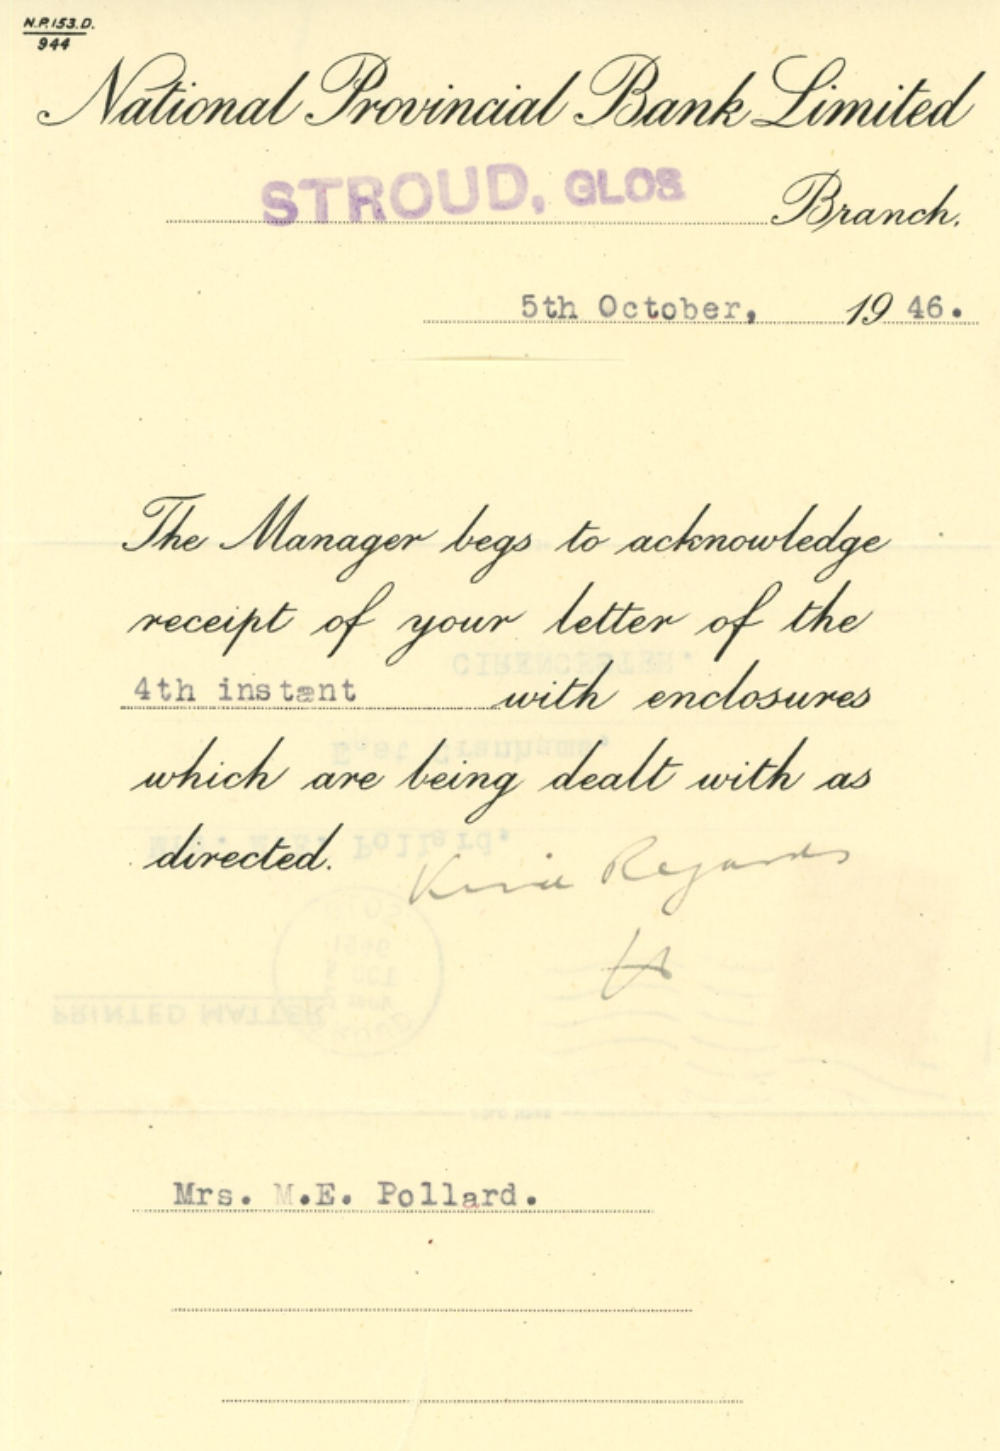 N.P.153.D.
944
National Provincial Bank Limited
STROUD, GLOS Branch.
5th October, 1946.
The Manager begs to acknowledge
receipt of your letter of the
4th instant with enclosures
which are being dealt with as
directed.
Kind Regards
Mrs. M.E. Pollard.
CIRENCESTER.
Pollard,
PRINTED MATTER